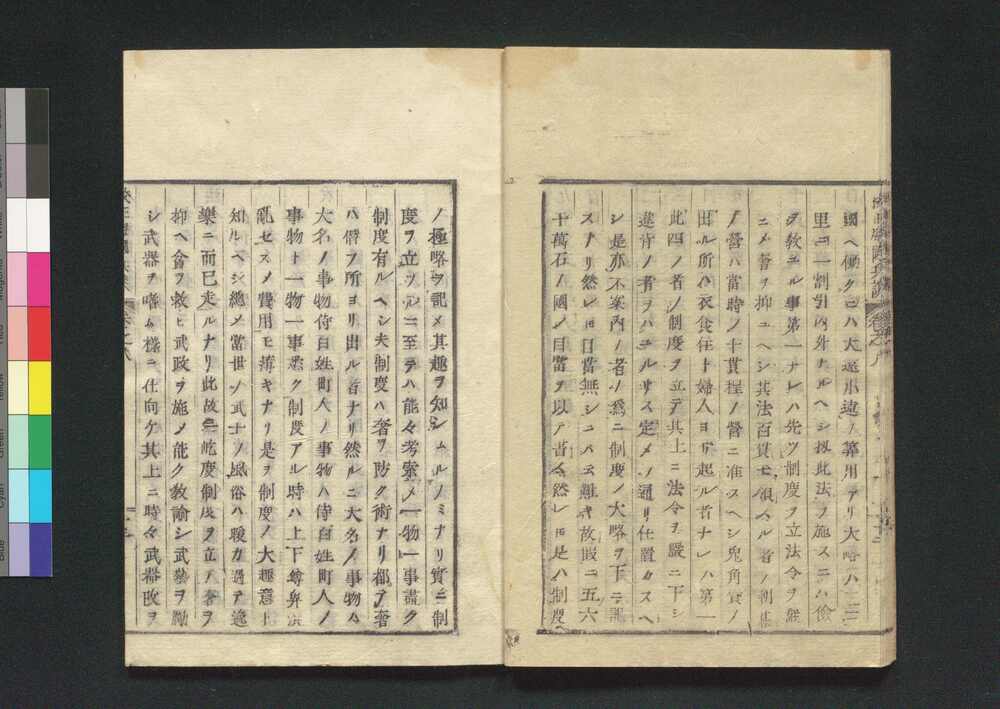 國ヘ働クニハ大違小違ノ算用アリ大略ハ二三
里ニ一割引内外ナルヘシ扨此法ヲ施スニハ儉
ヲ教エル事第一ナレハ先ツ制度ヲ立法令ヲ嚴
ニメ奢ヲ抑ユヘシ其法百貫モ領スル者ノ
ノ營ハ當時ノ十貫程ノ營ニ准スヘシ兎角貧ノ
田ル所ハ衣食住ト婦人ヨリ起ル者ナレハ第一
此四ノ者ノ制度ヲ立テ其上ニ法令ヲ嚴ニ下シ
違背ノ者ヲハユルリス定メノ通リ仕置カスヘ
シ是亦不案内ノ者ノ爲ニ制度ノ大略ヲ下ニ記
スナリ然レ𪜈目當無シニハ云難キ故假ニ五六
十萬石ノ國ノ目當ヲ以テ書ス然レ𪜈是ハ制度
ノ極略ヲ記メ其趣ヲ知シムルノミナリ實ニ制
度ヲ立ツルニ至テハ能々考索メ一物一事盡ク
制度有ルヘシ夫制度ハ奢ヲ防ク術ナリ都テ奢
ハ僭フ所ヨリ出ル者ナリ然ルニ大名ノ事物ハ
大名ノ事物侍百姓町人ノ事物ハ侍百姓町人ノ
事物ト一物一事悉ク制度アル時ハ上下尊卑
亂セスメ費用モ薄キナリ是ヲ制度ノ大趣意ト
知ルヘシ總メ當世ノ武士ノ風俗ハ暖カ過テ逸
樂ニ而已走ルナリ此故ニ屹度制度ヲ立テ奢ヲ
抑ヘ貪ヲ救ヒ武政ヲ施メ能ク教諭シ武藝ヲ勵
シ武器ヲ嗜ム樣ニ仕向ケ其上ニ時々武器改ヲ